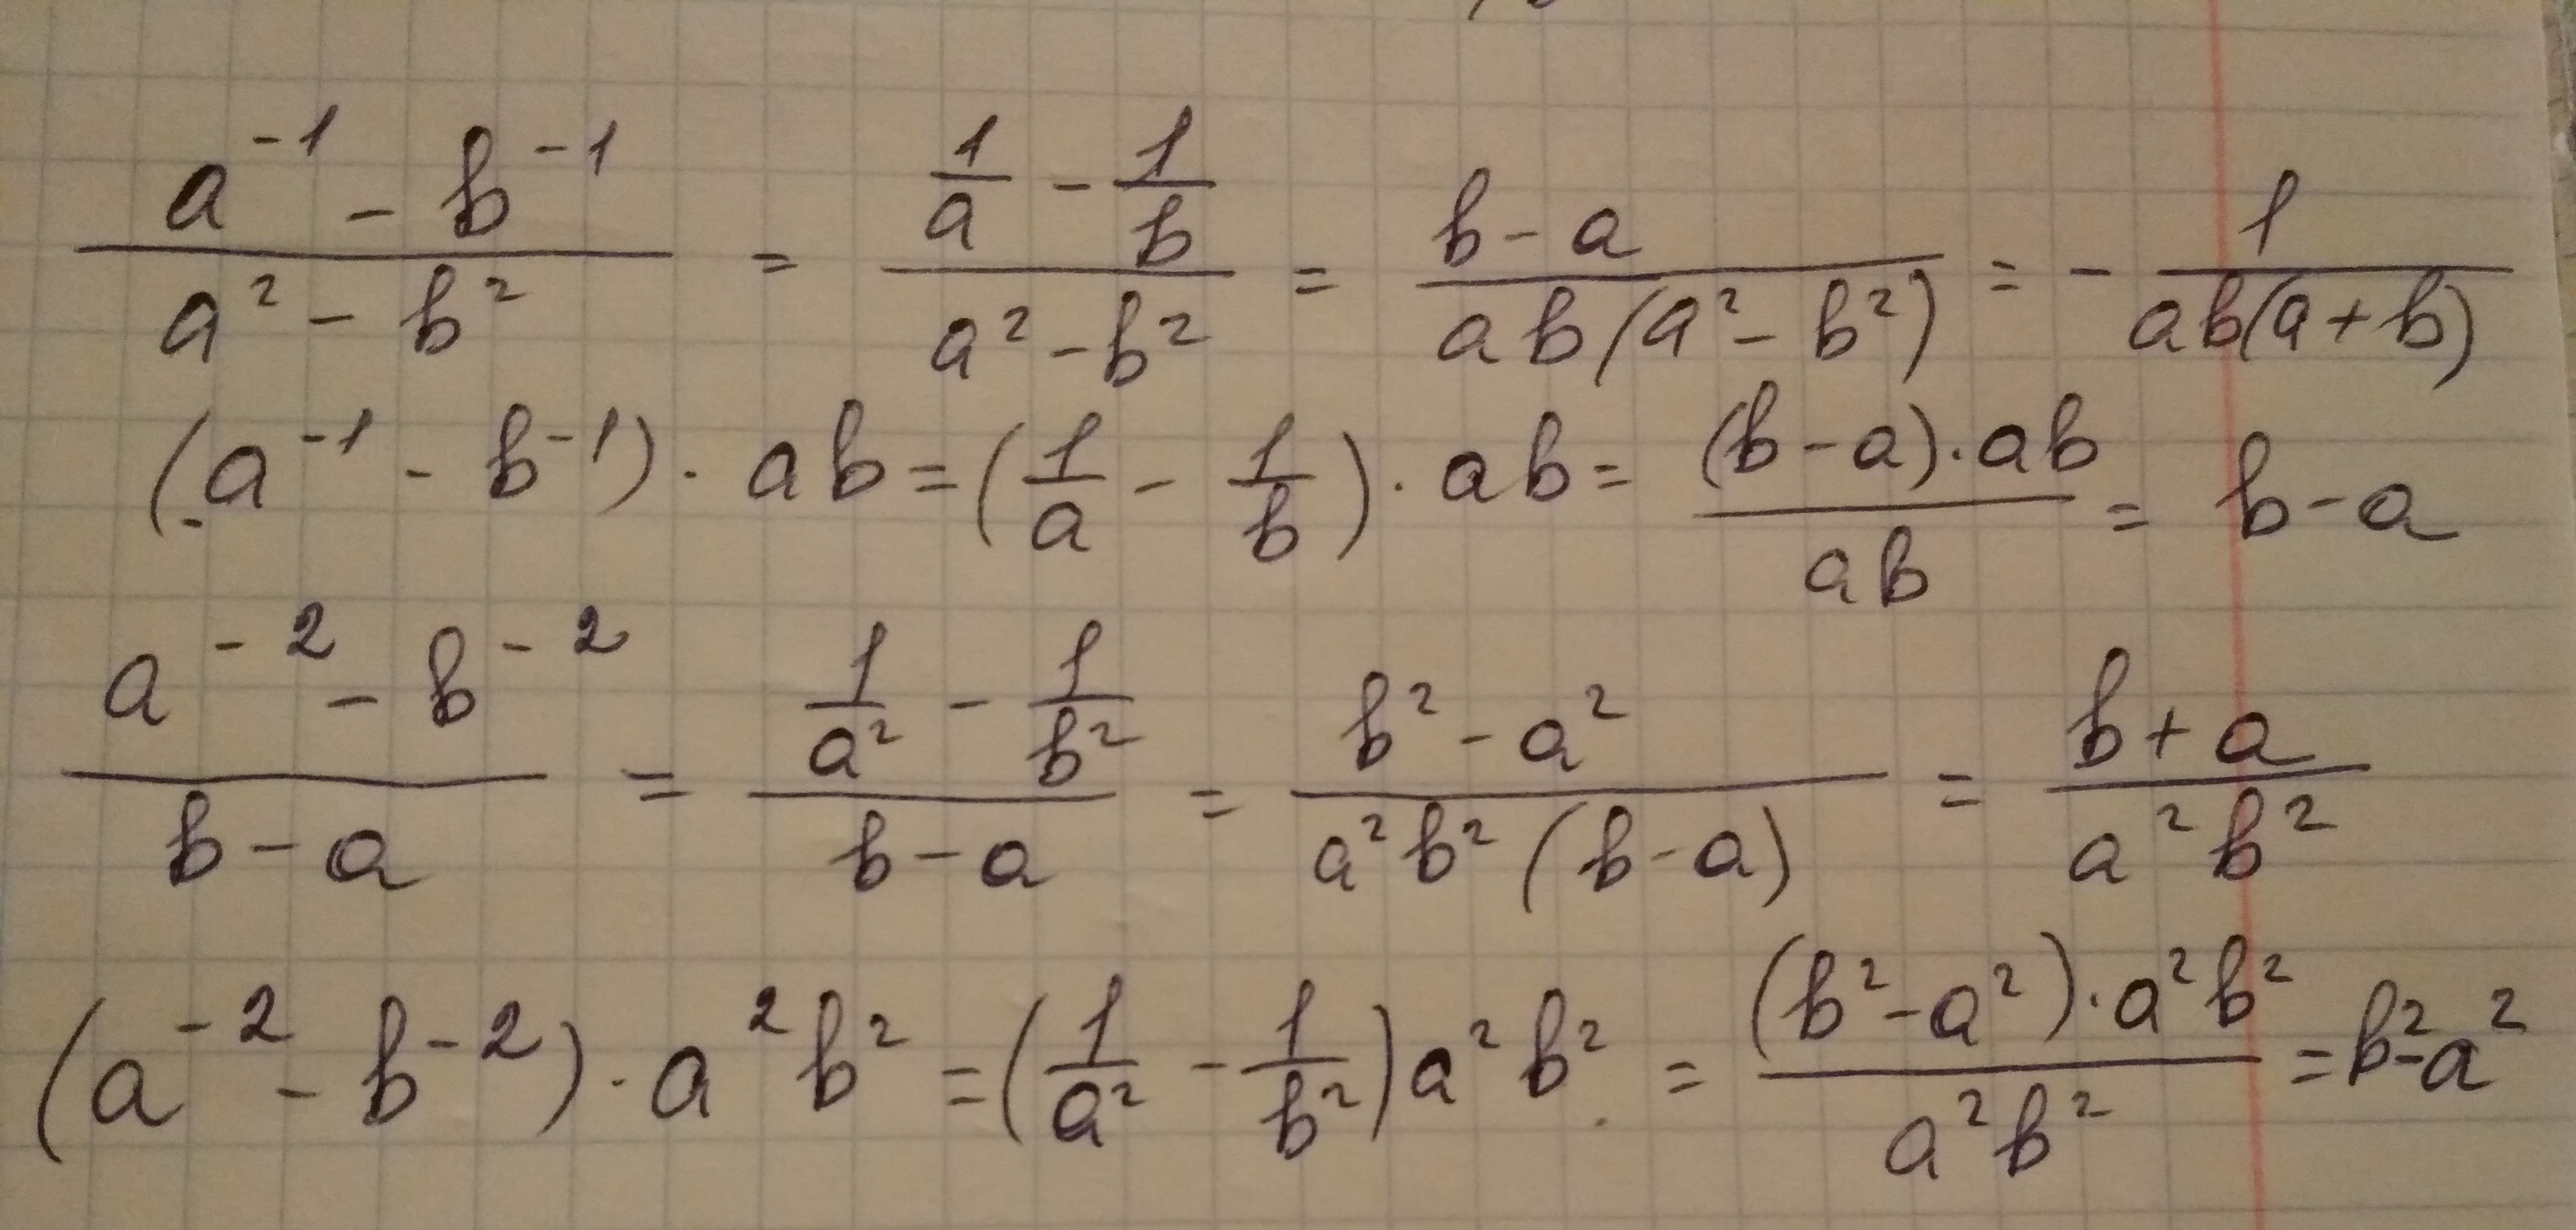 \frac{a^{-1} - b^{-1}}{a^2 - b^2} = \frac{\frac{1}{a} - \frac{1}{b}}{a^2 - b^2} = \frac{b - a}{ab(a^2 - b^2)} = -\frac{1}{ab(a+b)}
(a^{-1} - b^{-1}) \cdot ab = (\frac{1}{a} - \frac{1}{b}) \cdot ab = \frac{(b-a) \cdot ab}{ab} = b - a
\frac{a^{-2} - b^{-2}}{b - a} = \frac{\frac{1}{a^2} - \frac{1}{b^2}}{b - a} = \frac{b^2 - a^2}{a^2 b^2 (b - a)} = \frac{b + a}{a^2 b^2}
(a^{-2} - b^{-2}) \cdot a^2 b^2 = (\frac{1}{a^2} - \frac{1}{b^2}) a^2 b^2 = \frac{(b^2 - a^2) \cdot a^2 b^2}{a^2 b^2} = b^2 - a^2